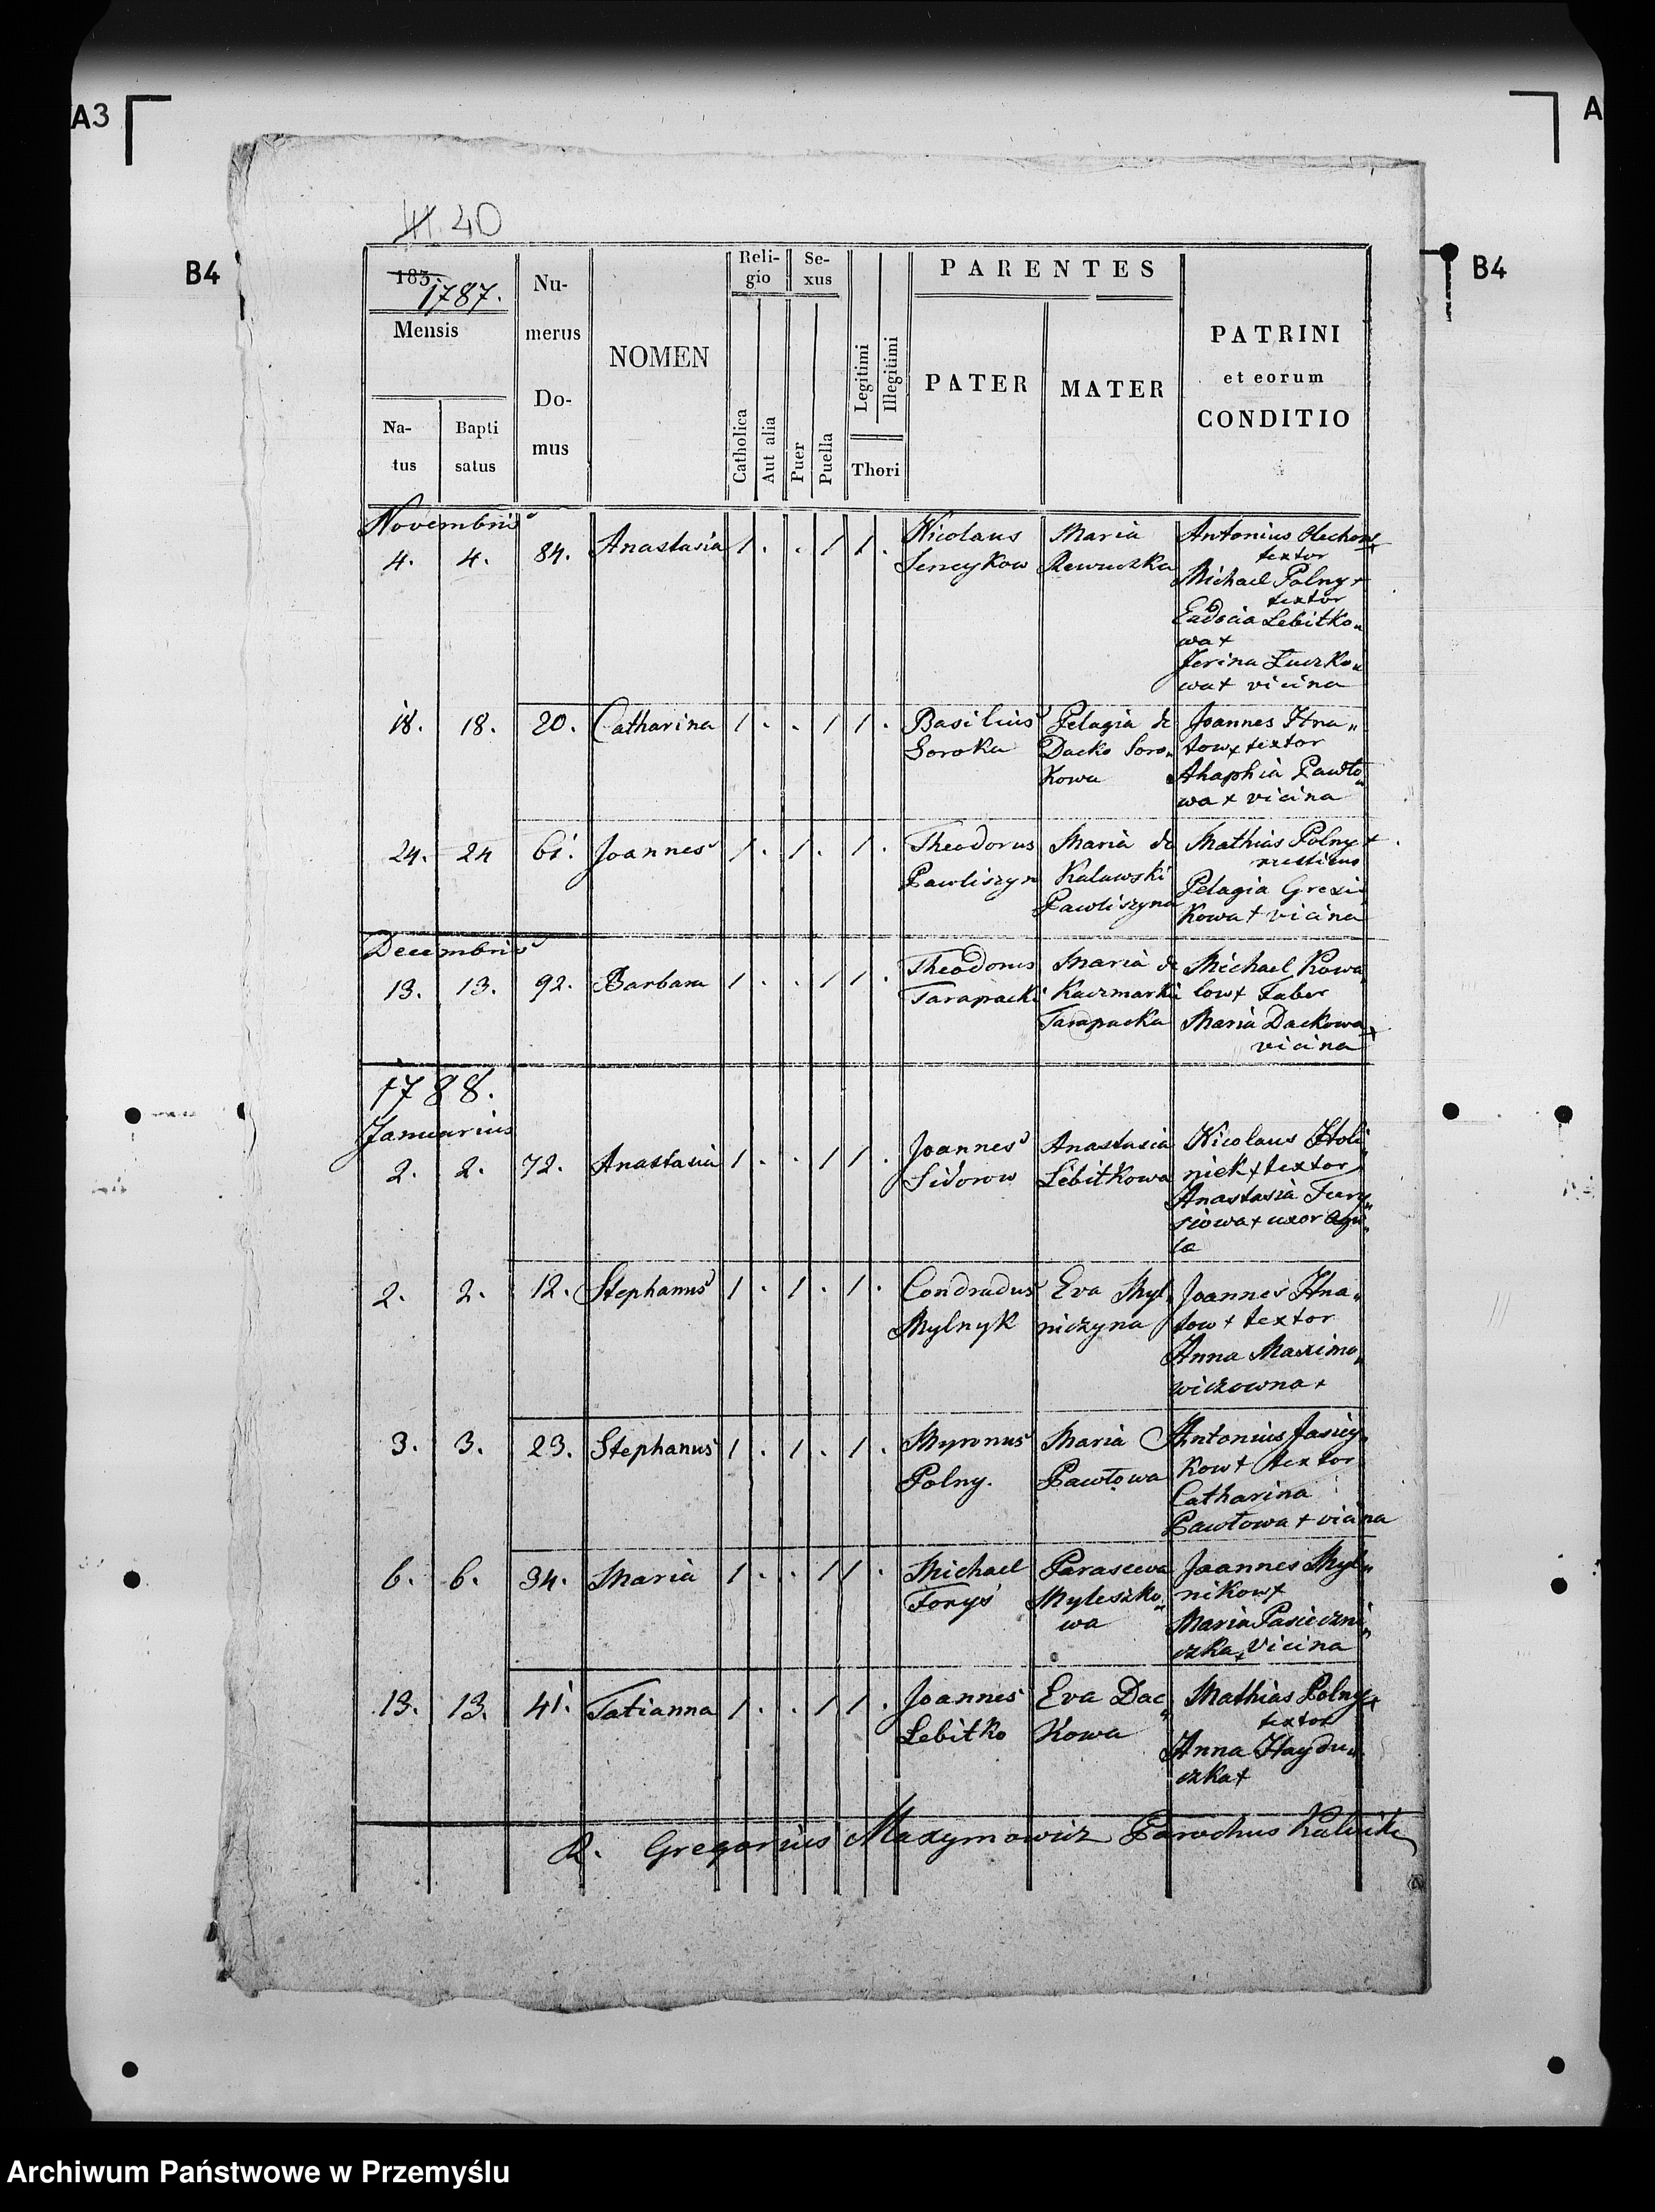 A3
A
41. 40
B4
B4
183 .
1787.
Mensis
Na-
tus
Bapti
satus
Nu-
merus
Do-
mus
NOMEN
Reli-
gio
Catholica
Aut alia
Se-
xus
Puer
Puella
Legitimi
Illegitimi
Thori
PARENTES
PATER
MATER
PATRINI
et eorum
CONDITIO
Novembris
4. 4. 84. Anastasia 1 . . 1 1 .
Nicolaus
Sencykow
Maria
Rewuczka
Antonius Olechow
textor
Michael Polny +
textor
Eudocia Lebitko„
wa +
Jerina Łuczko„
wa + vicina
18. 18. 20. Catharina 1 . . 1 1 .
Basilius
Soroka
Pelagia de
Dacko Soro„
kowa
Joannes Hna„
tow + textor
Ahaphia Pawło„
wa + vicina
24. 24 61. Joannes 1 . 1 . 1 .
Theodorus
Pawliszyn
Maria de
Kalawski
Pawliszyna
Mathias Polny +
rusticus
Pelagia Grexi„
kowa + vicina
Decembris
13. 13. 92. Barbara 1 . . 1 1 .
Theodorus
Tarapacki
Maria de
Kaczmarki
Tarapacka
Michael Kowa„
low + Faber
Maria Dackowa +
vicina
1788.
Januarius
2. 2. 72. Anastasia 1 . . 1 1 .
Joannes
Sidorow
Anastasia
Lebitkowa
Nicolaus Holi„
niek + textor
Anastasia Fury„
siowa + uxor agri„
lae
2. 2. 12. Stephanus 1 . 1 . 1 .
Condradus
Mylnyk
Eva Myl„
niczyna
Joannes Hna„
tow + textor
Anna Maximo„
wiczowna +
3. 3. 23. Stephanus 1 . 1 . 1 .
Myronus
Polny.
Maria
Pawłowa
Antonius Jasiey„
kow + textor
Catharina
Pawłowa + vicina
6. 6. 34. Maria 1 . . 1 1 .
Michael
Forys
Parascewa
Myleszko„
wa
Joannes Myl„
nikow +
Maria Pasieczni„
czka + Vicina
13. 13. 41. Tatianna 1 . . 1 1 .
Joannes
Lebitko
Eva Dac„
kowa
Mathias Polny +
textor
Anna Haydu„
czka +
R. Gregorius Maxymowicz Parochus
Archiwum Państwowe w Przemyślu